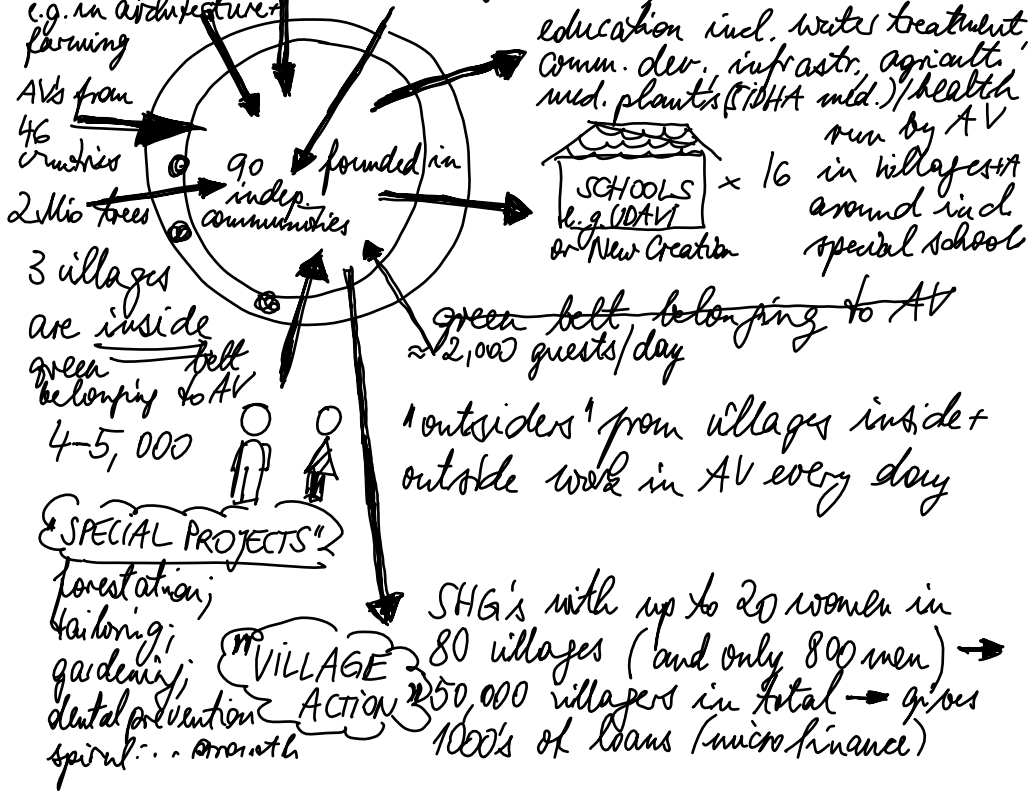 e.g. in architecture +
farming
AV's from
46
countries
2 Mio trees
3 villages
are inside
green belt
belonging to AV
4-5,000
90
indep.
communities
founded in
education incl. water treatment,
comm. dev. infrastr. agricult.
med. plants (SIDHA med.)/health
SCHOOLS
e.g. UDAVI
or New Creation
x 16
run by AV
in villages +
around incl
special school
green belt belonging to AV
≈ 2,000 guests/day
"outsiders" from villages inside +
outside work in AV every day
"SPECIAL PROJECTS"
forestation;
tailoring;
gardening;
dental prevention
"VILLAGE
ACTION"
SHG's with up to 20 women in
80 villages (and only 800 men) →
250,000 villagers in total → gives
1000's of loans (microfinance)